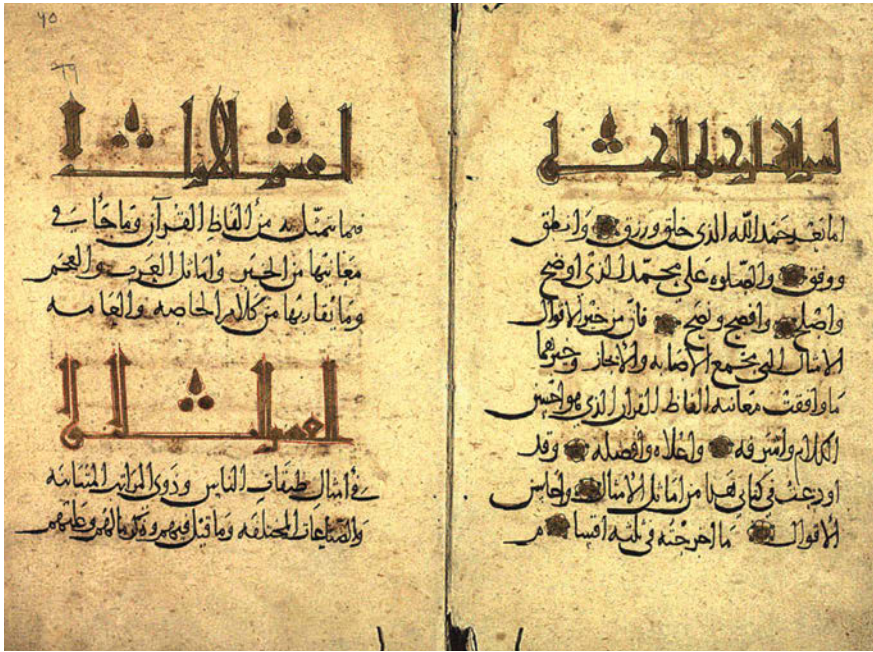 بسم الله الرحمن الرحيم
اما بعد حمد الله الذى خلق ورزق وانطق
ووفق والصلوه على محمد الذى اوضح
واصلح وافصح ونصح فان من خير الاقوال
الامثال التى تجمع الاصابه والايجاز وخيرهما
ما وافقت معانيه الفاظ القران الذى هو احسن
الكلام واشرفه واعلاه وافضله وقد
اودعت فى كتابى هذا من اماثل الامثال واحاسن
الاقوال ما اخرجته فى ثلثه اقسام
القسم الاول
فيما يتمثل به من الفاظ القرآن وما جا فى
معانيها من الخبر وامثال العرب والعجم
وما يقاربها من كلام الخاصه والعامه
القسم الثانى
فى امثال طبقات الناس وذوى المراتب المتباينه
والصناعات المختلفه وما قيل فيهم وذكر مالهم وعليهم